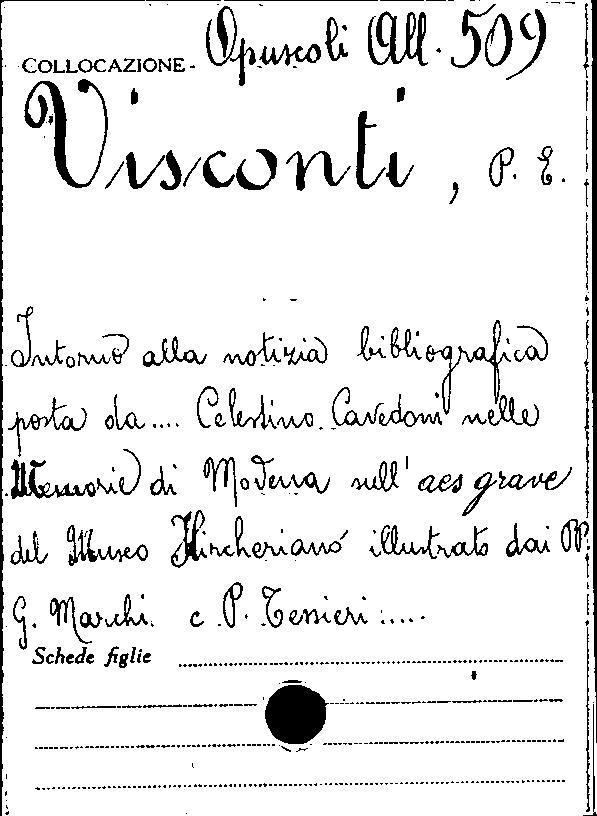 COLLOCAZIONE - Opuscoli All. 509
Visconti, P. E.
Intorno alla notizia bibliografica
posta da.... Celestino Cavedoni nelle
Memorie di Modena sull' aes grave
del Museo Kircheriano illustrato dai PP.
G. Marchi e P. Tessieri.....
Schede figlie